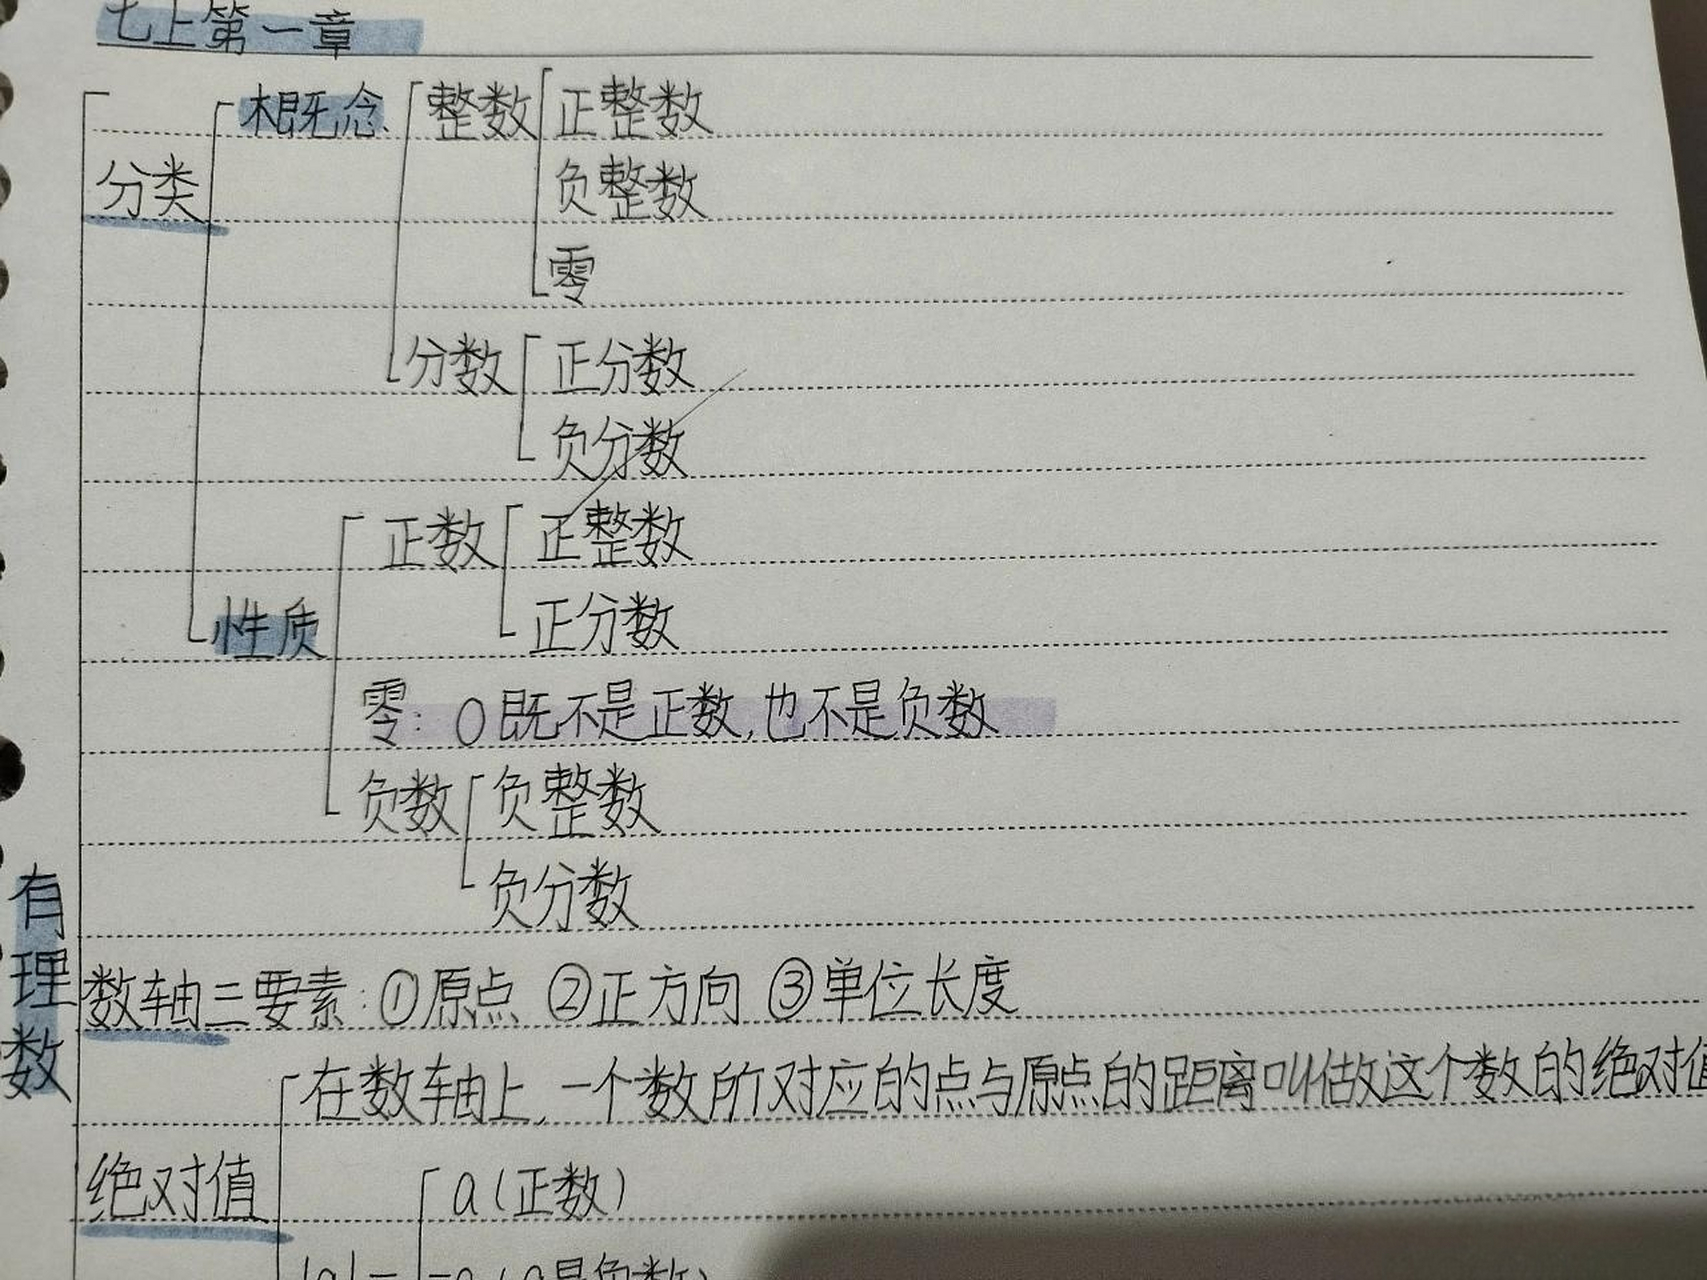 七上第一章
概念 整数 正整数
分类 负整数
零
分数 正分数
负分数
正数 正整数
性质 正分数
零：0既不是正数,也不是负数
负数 负整数
负分数
有理数
数轴三要素：①原点 ②正方向 ③单位长度
在数轴上,一个数所对应的点与原点的距离叫做这个数的绝对值
绝对值 a(正数)
|a|= -a(a是负数)